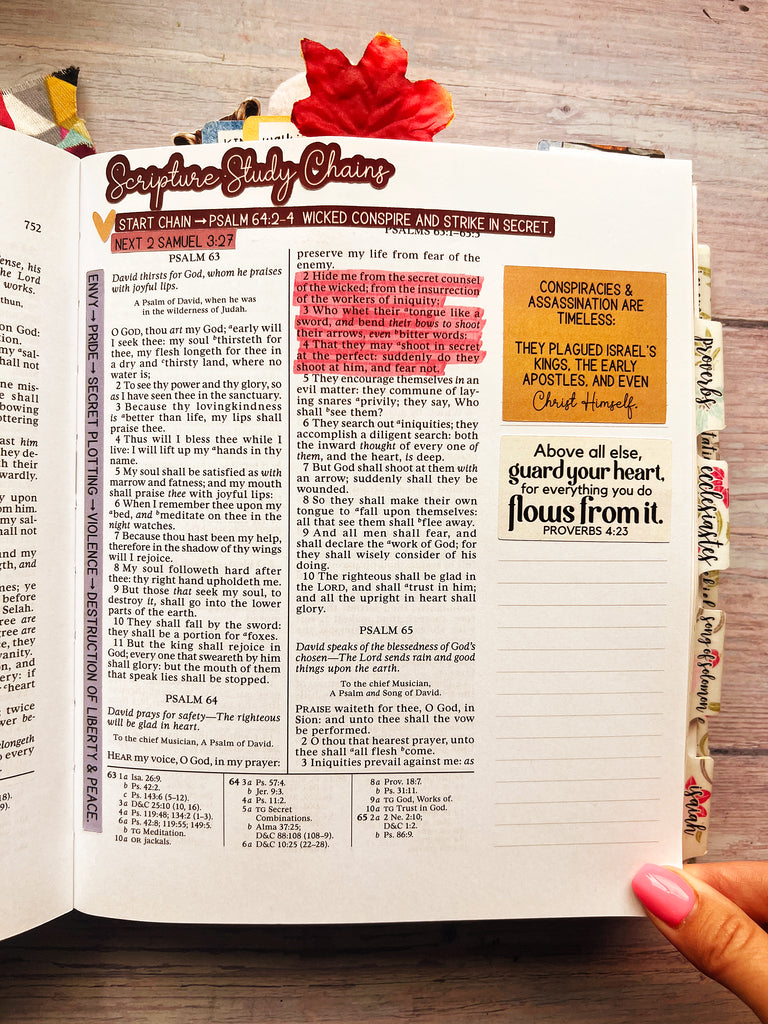 Scripture Study Chains
START CHAIN → PSALM 64:2-4 WICKED CONSPIRE AND STRIKE IN SECRET.
NEXT 2 SAMUEL 3:27
752
ENVY → PRIDE → SECRET PLOTTING → VIOLENCE → DESTRUCTION OF LIBERTY & PEACE.
PSALM 63
David thirsts for God, whom he praises
with joyful lips.
A Psalm of David, when he was
in the wilderness of Judah.
O GOD, thou art my God; aearly will
I seek thee: my soul bthirsteth for
thee, my flesh longeth for thee in
a dry and cthirsty land, where no
water is;
2 To see thy power and thy glory, so
as I have seen thee in the sanctuary.
3 Because thy lovingkindness
is abetter than life, my lips shall
praise thee.
4 Thus will I bless thee while I
live: I will lift up my ahands in thy
name.
5 My soul shall be satisfied as with
marrow and fatness; and my mouth
shall praise thee with joyful lips:
6 When I remember thee upon my
abed, and bmeditate on thee in the
night watches.
7 Because thou hast been my help,
therefore in the shadow of thy wings
will I rejoice.
8 My soul followeth hard after
thee: thy right hand upholdeth me.
9 But those that seek my soul, to
destroy it, shall go into the lower
parts of the earth.
10 They shall fall by the sword:
they shall be a portion for afoxes.
11 But the king shall rejoice in
God; every one that sweareth by him
shall glory: but the mouth of them
that speak lies shall be stopped.
PSALM 64
David prays for safety—The righteous
will be glad in heart.
To the chief Musician, A Psalm of David.
HEAR my voice, O God, in my prayer:
preserve my life from fear of the
enemy.
2 Hide me from the secret counsel
of the wicked; from the insurrection
of the workers of iniquity:
3 Who whet their atongue like a
sword, and bend their bows to shoot
their arrows, even bbitter words:
4 That they may ashoot in secret
at the perfect: suddenly do they
shoot at him, and fear not.
5 They encourage themselves in an
evil matter: they commune of lay-
ing snares aprivily; they say, Who
shall bsee them?
6 They search out ainiquities; they
accomplish a diligent search: both
the inward thought of every one of
them, and the heart, is deep.
7 But God shall shoot at them with
an arrow; suddenly shall they be
wounded.
8 So they shall make their own
tongue to afall upon themselves:
all that see them shall bflee away.
9 And all men shall fear, and
shall declare the awork of God; for
they shall wisely consider of his
doing.
10 The righteous shall be glad in
the LORD, and shall atrust in him;
and all the upright in heart shall
glory.
PSALM 65
David speaks of the blessedness of God's
chosen—The Lord sends rain and good
things upon the earth.
To the chief Musician,
A Psalm and Song of David.
PRAISE waiteth for thee, O God, in
Sion: and unto thee shall the vow
be performed.
2 O thou that hearest prayer, unto
thee shall aall flesh bcome.
3 Iniquities prevail against me: as
63 1a Isa. 26:9.
b Ps. 42:2.
c Ps. 143:6 (5–12).
3a D&C 25:10 (10, 16).
4a Ps. 119:48; 134:2 (1–3).
6a Ps. 42:8; 119:55; 149:5.
b TG Meditation.
10a OR jackals.
64 3a Ps. 57:4.
b Jer. 9:3.
4a Ps. 11:2.
5a TG Secret
Combinations.
b Alma 37:25;
D&C 88:108 (108–9).
6a D&C 10:25 (22–28).
8a Prov. 18:7.
b Ps. 31:11.
9a TG God, Works of.
10a TG Trust in God.
65 2a 2 Ne. 2:10;
D&C 1:2.
b Ps. 86:9.
CONSPIRACIES &
ASSASSINATION ARE
TIMELESS:
THEY PLAGUED ISRAEL'S
KINGS, THE EARLY
APOSTLES, AND EVEN
Christ Himself.
Above all else,
guard your heart,
for everything you do
flows from it.
PROVERBS 4:23
proverbs
ecclesiastes
song of solomon
isaiah